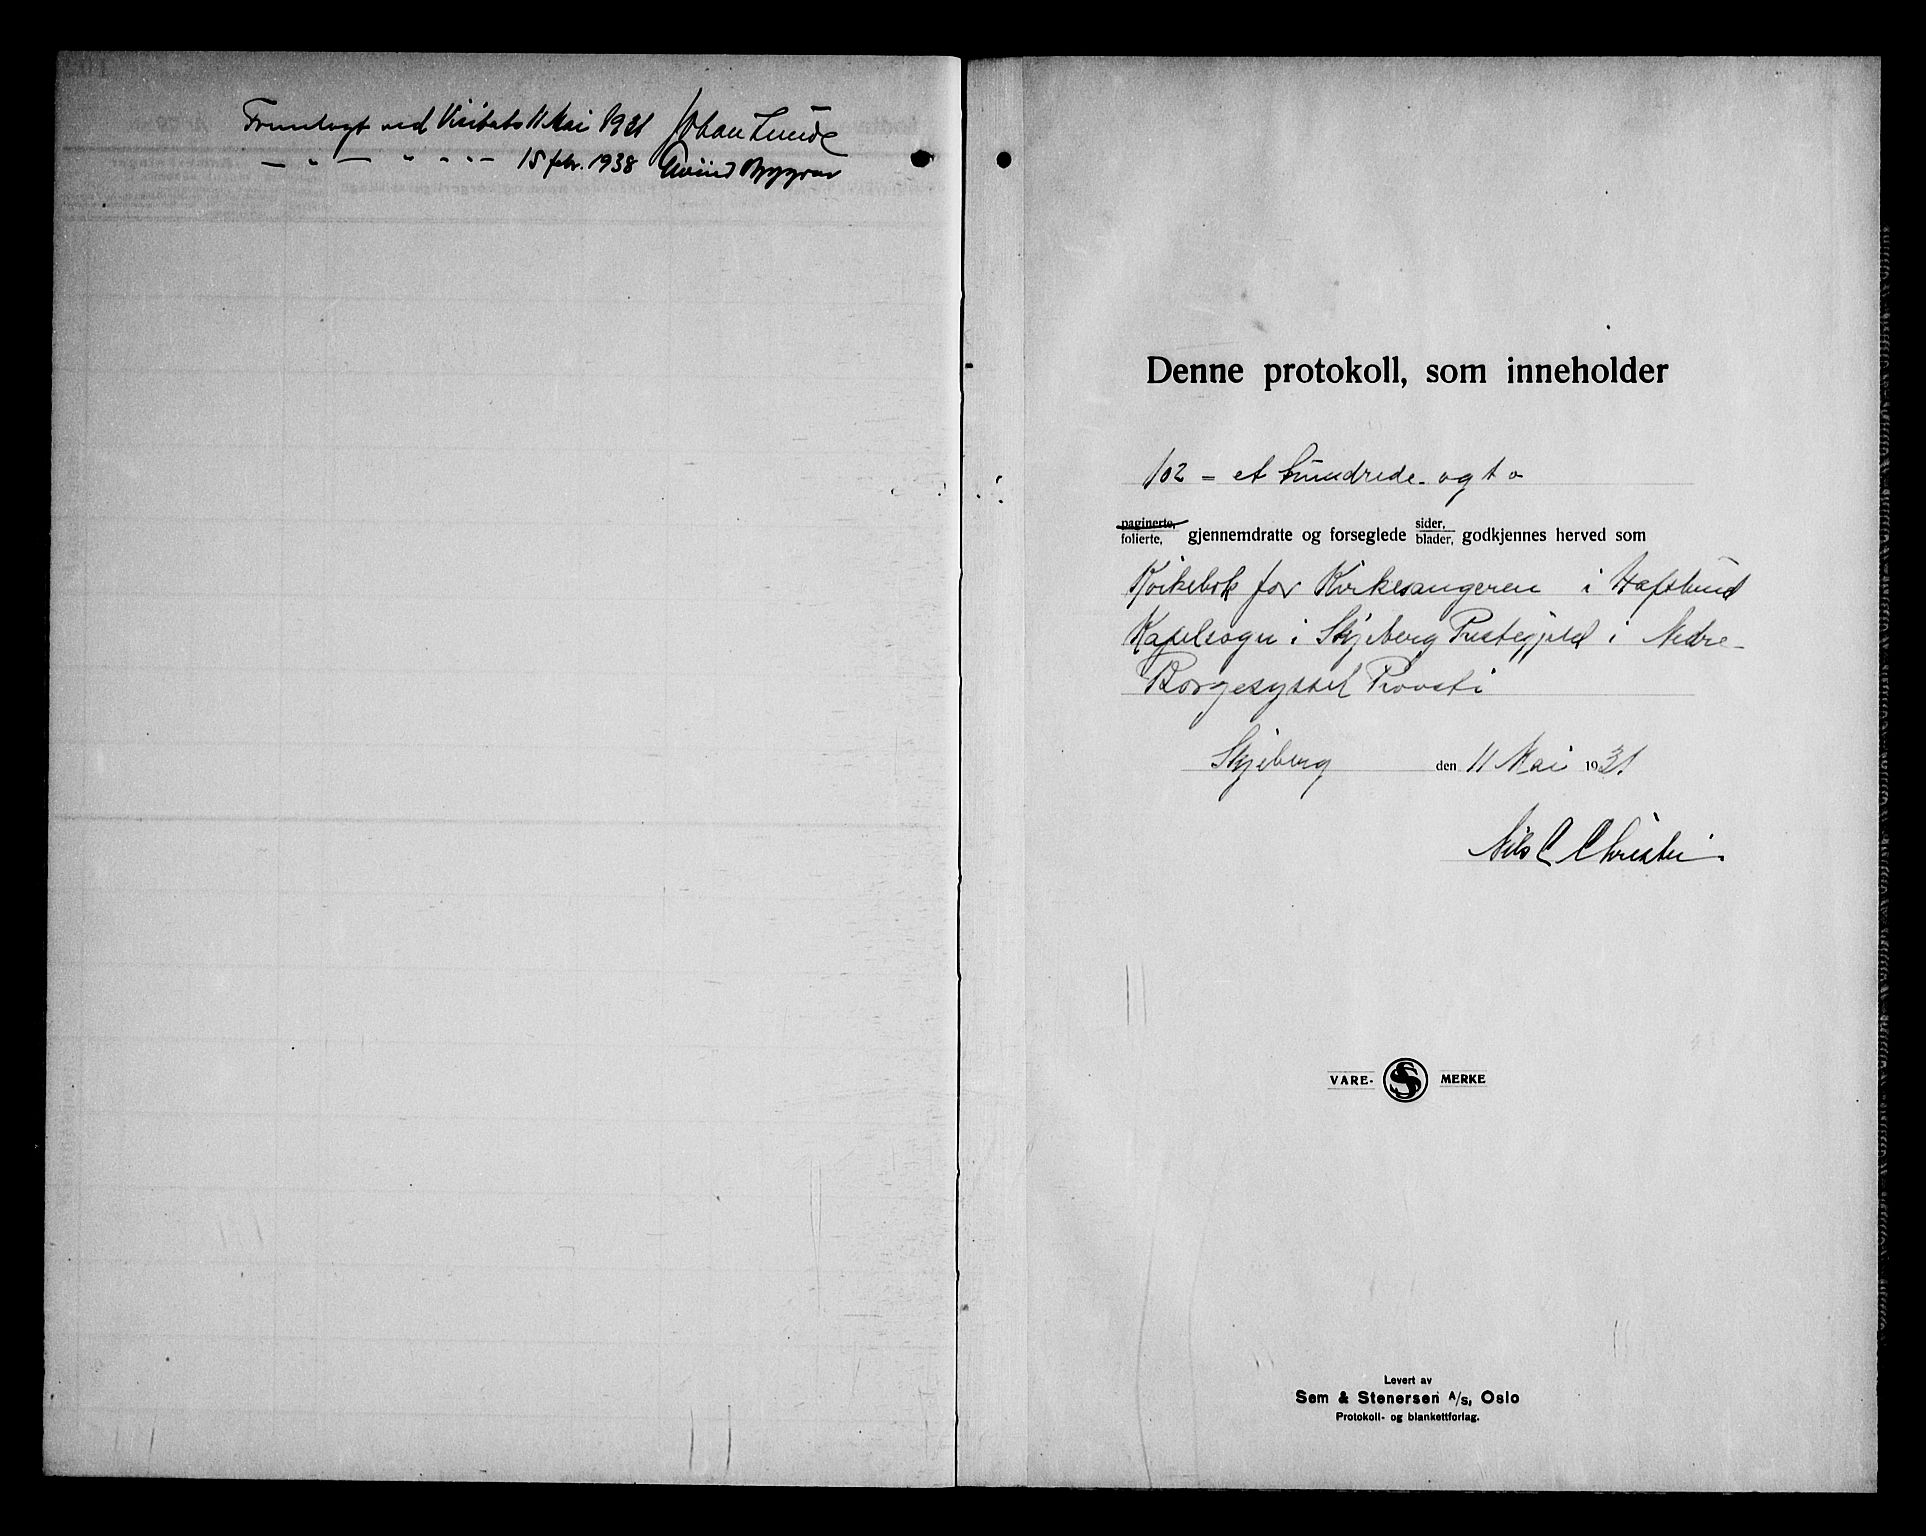 Fremlagt ved Visitats 11 Mai 1931 Johan Lunde
— " — " - - — 15 febr. 1938 Eivind Berggrav
Denne protokoll, som inneholder
102 = et hundrede og to
paginerte, folierte, gjennemdratte og forseglede sider, blader, godkjennes herved som
Kirkebok for Kirkesangeren i Hafslund
Kapelsogn i Skjeberg Prestegjeld i Nedre-
Borgesyssel Provsti
Skjeberg den 11 Mai 1931.
Nils C Christie.
VARE- S MERKE
Levert av
Sem & Stenersen A/S, Oslo
Protokoll- og blankettforlag.